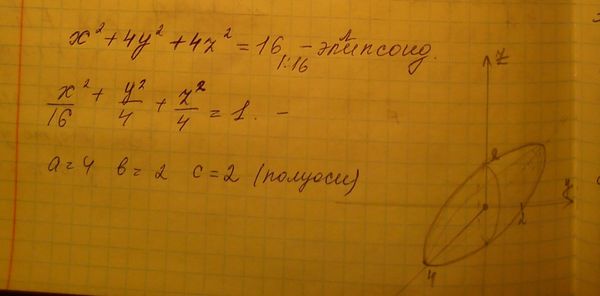 x² + 4y² + 4z² = 16 – элипсоид.
л
1:16
x²/16 + y²/4 + z²/4 = 1. –
a = 4 b = 2 c = 2 (полуоси)
z
2
y
2
4